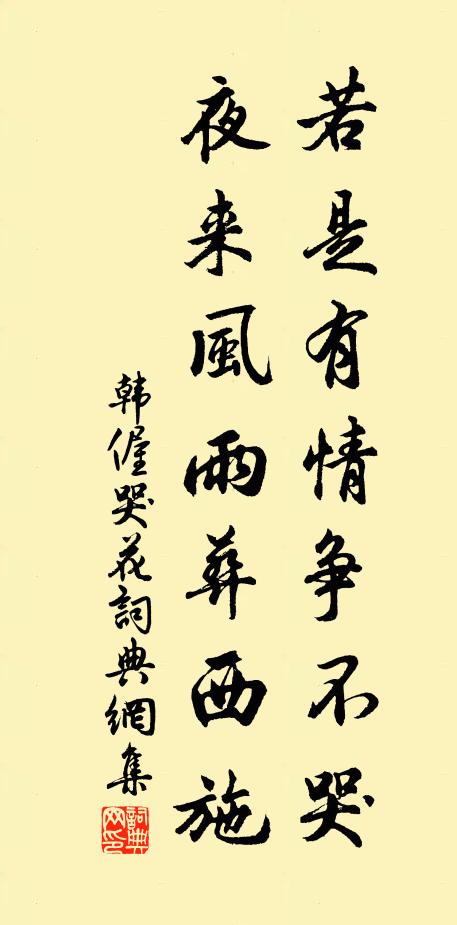 若是有情争不哭
夜来風雨葬西施
韩偓哭花詞典網集
詞典网印